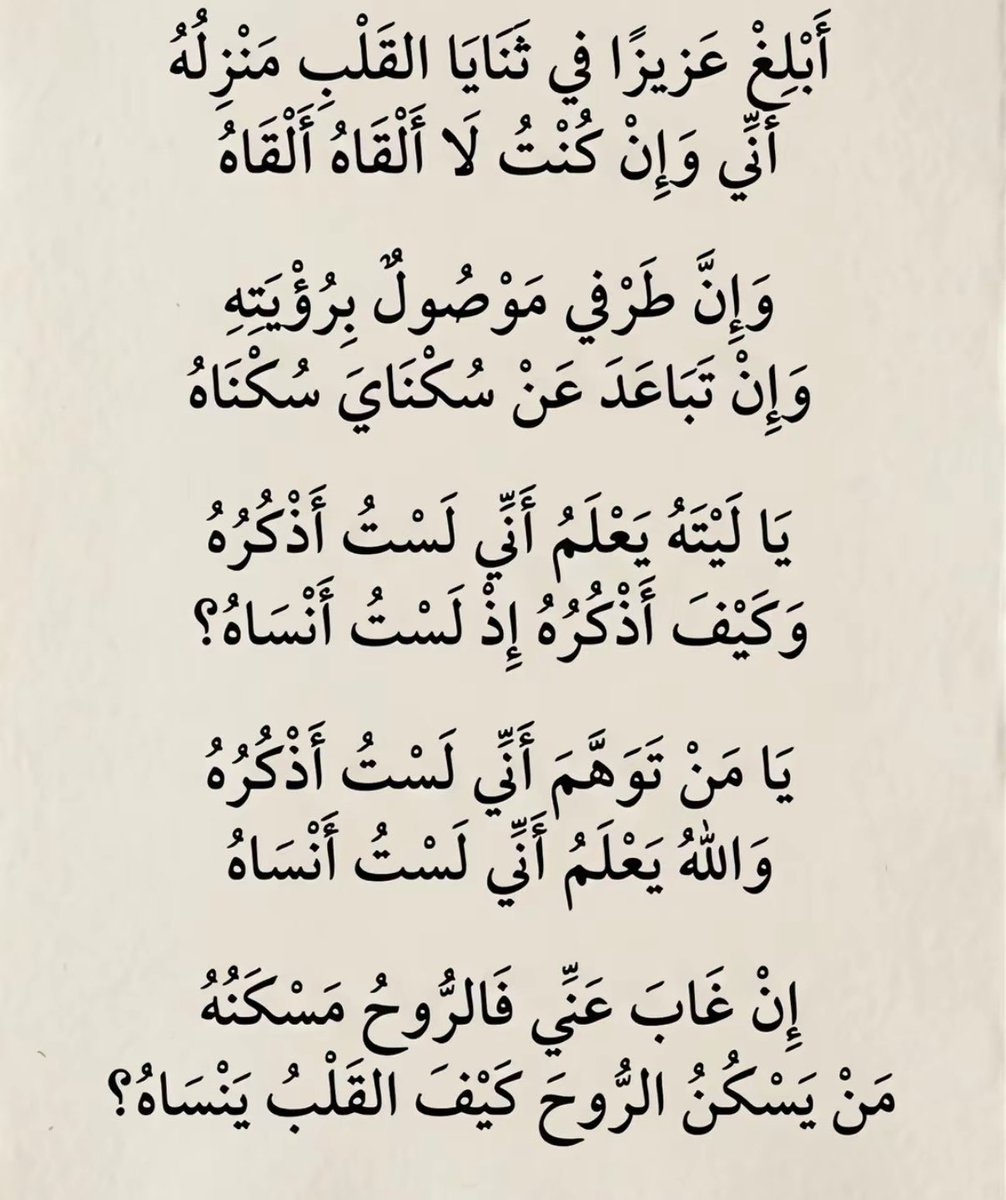 أَبْلِغْ عَزيزًا في ثَنَايَا القَلْبِ مَنْزِلُهُ
أَنِّي وَإِنْ كُنْتُ لَا أَلْقَاهُ أَلْقَاهُ
وَإِنَّ طَرْفي مَوْصُولٌ بِرُؤْيَتِهِ
وَإِنْ تَبَاعَدَ عَنْ سُكْنَايَ سُكْنَاهُ
يَا لَيْتَهُ يَعْلَمُ أَنِّي لَسْتُ أَذْكُرُهُ
وَكَيْفَ أَذْكُرُهُ إِذْ لَسْتُ أَنْسَاهُ؟
يَا مَنْ تَوَهَّمَ أَنِّي لَسْتُ أَذْكُرُهُ
وَاللهُ يَعْلَمُ أَنِّي لَسْتُ أَنْسَاهُ
إِنْ غَابَ عَنِّي فَالرُّوحُ مَسْكَنُهُ
مَنْ يَسْكُنُ الرُّوحَ كَيْفَ القَلْبُ يَنْسَاهُ؟